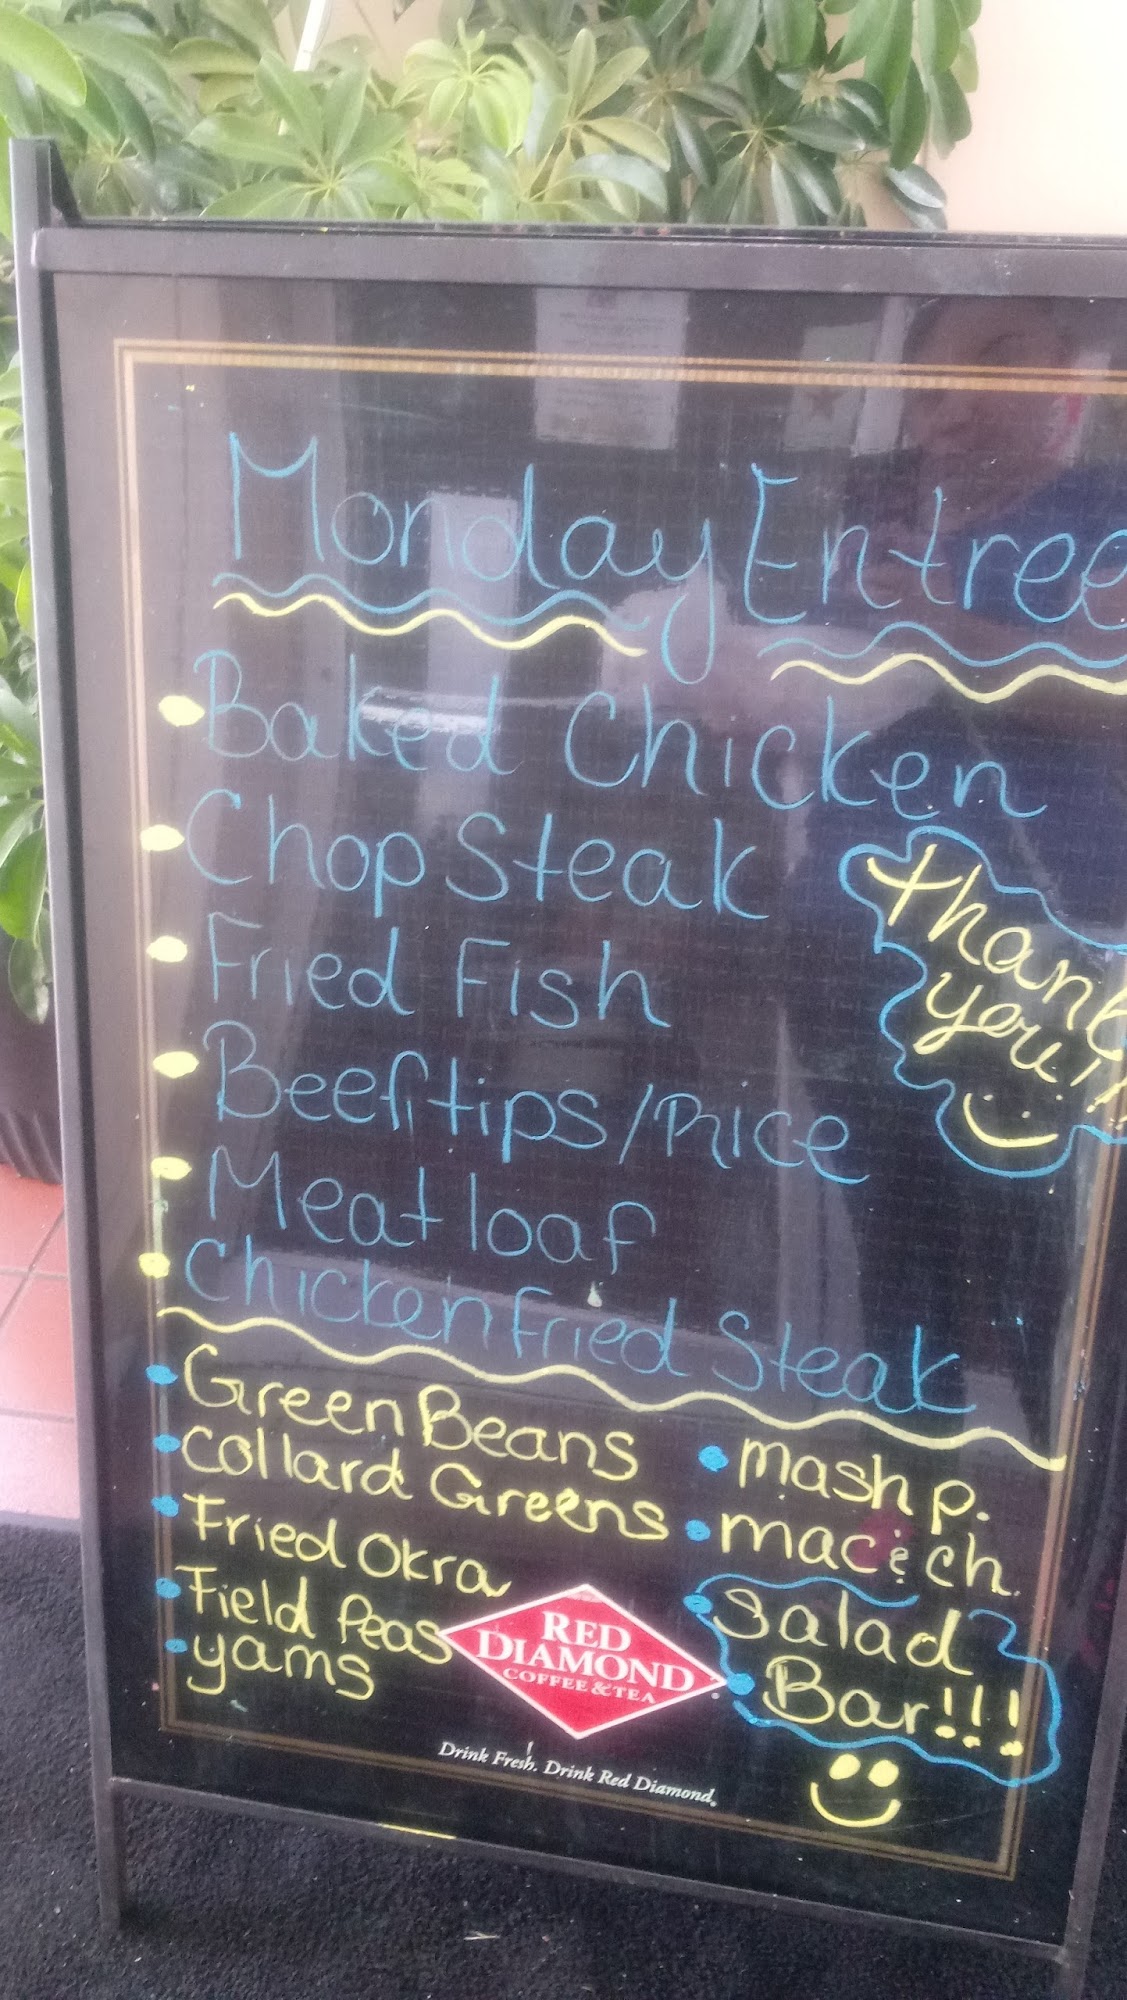 Monday Entree
Baked Chicken
Chop Steak
Fried Fish
Beef tips/Rice
Meatloaf
Chicken Fried Steak
Thank
you!!!
Green Beans
Collard Greens
Fried Okra
Field Peas
yams
mash p.
mac & ch.
Salad
Bar!!!
RED
DIAMOND
COFFEE & TEA
Drink Fresh. Drink Red Diamond.